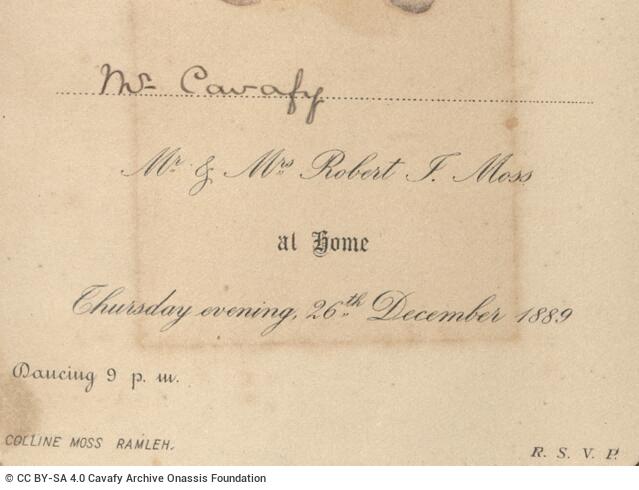 Mr Cavafy
Mr. & Mrs Robert J. Moss
at Home
Thursday evening, 26th December 1889
Dancing 9 p. m.
COLLINE MOSS RAMLEH.
R. S. V. P.
© CC BY-SA 4.0 Cavafy Archive Onassis Foundation